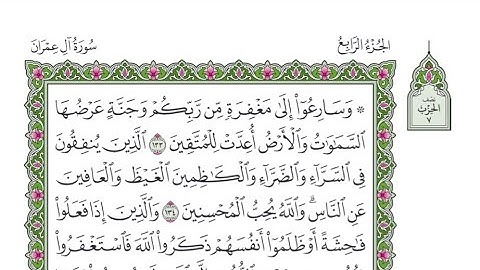 الجُزْءُ الرَّابِعُ
سُورَةُ آلِ عِمْرَان
نِصْفُ
الحِزْبِ
٧
۞ وَسَارِعُوٓا۟ إِلَىٰ مَغْفِرَةٍ مِّن رَّبِّكُمْ وَجَنَّةٍ عَرْضُهَا
ٱلسَّمَٰوَٰتُ وَٱلْأَرْضُ أُعِدَّتْ لِلْمُتَّقِينَ ١٣٣ ٱلَّذِينَ يُنفِقُونَ
فِى ٱلسَّرَّآءِ وَٱلضَّرَّآءِ وَٱلْكَٰظِمِينَ ٱلْغَيْظَ وَٱلْعَافِينَ
عَنِ ٱلنَّاسِ ۗ وَٱللَّهُ يُحِبُّ ٱلْمُحْسِنِينَ ١٣٤ وَٱلَّذِينَ إِذَا فَعَلُوا۟
فَٰحِشَةً أَوْ ظَلَمُوٓا۟ أَنفُسَهُمْ ذَكَرُوا۟ ٱللَّهَ فَٱسْتَغْفَرُوا۟